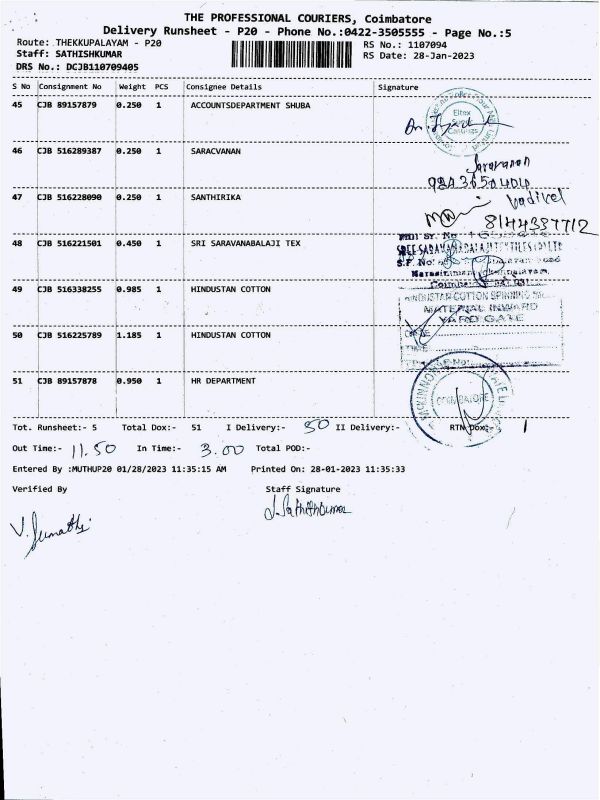 THE PROFESSIONAL COURIERS, Coimbatore
Delivery Runsheet - P20 - Phone No.:0422-3505555 - Page No.:5
Route: THEKKUPALAYAM - P20 RS No.: 1107094
Staff: SATHISHKUMAR RS Date: 28-Jan-2023
DRS No.: DCJB110709405
S No Consignment No Weight PCS Consignee Details Signature
45 CJB 89157879 0.250 1 ACCOUNTSDEPARTMENT SHUBA
Eltex
46 CJB 516289387 0.250 1 SARACVANAN Saravanan
47 CJB 516228090 0.250 1 SANTHIRIKA Vadivel
8144387712
48 CJB 516221501 0.450 1 SRI SARAVANABALAJI TEX
49 CJB 516338255 0.985 1 HINDUSTAN COTTON
HINDUSTAN COTTON SPINNING
MATERIAL INWARD
YARD GATE
50 CJB 516225789 1.185 1 HINDUSTAN COTTON
DATE
TIME
51 CJB 89157878 0.950 1 HR DEPARTMENT
COIMBATORE
Tot. Runsheet:- 5 Total Dox:- 51 I Delivery:- 50 II Delivery:- RTN Dox:- 1
Out Time:- 11.50 In Time:- 3.00 Total POD:-
Entered By :MUTHUP20 01/28/2023 11:35:15 AM Printed On: 28-01-2023 11:35:33
Verified By Staff Signature
V. Sumathi J. Sathishkumar